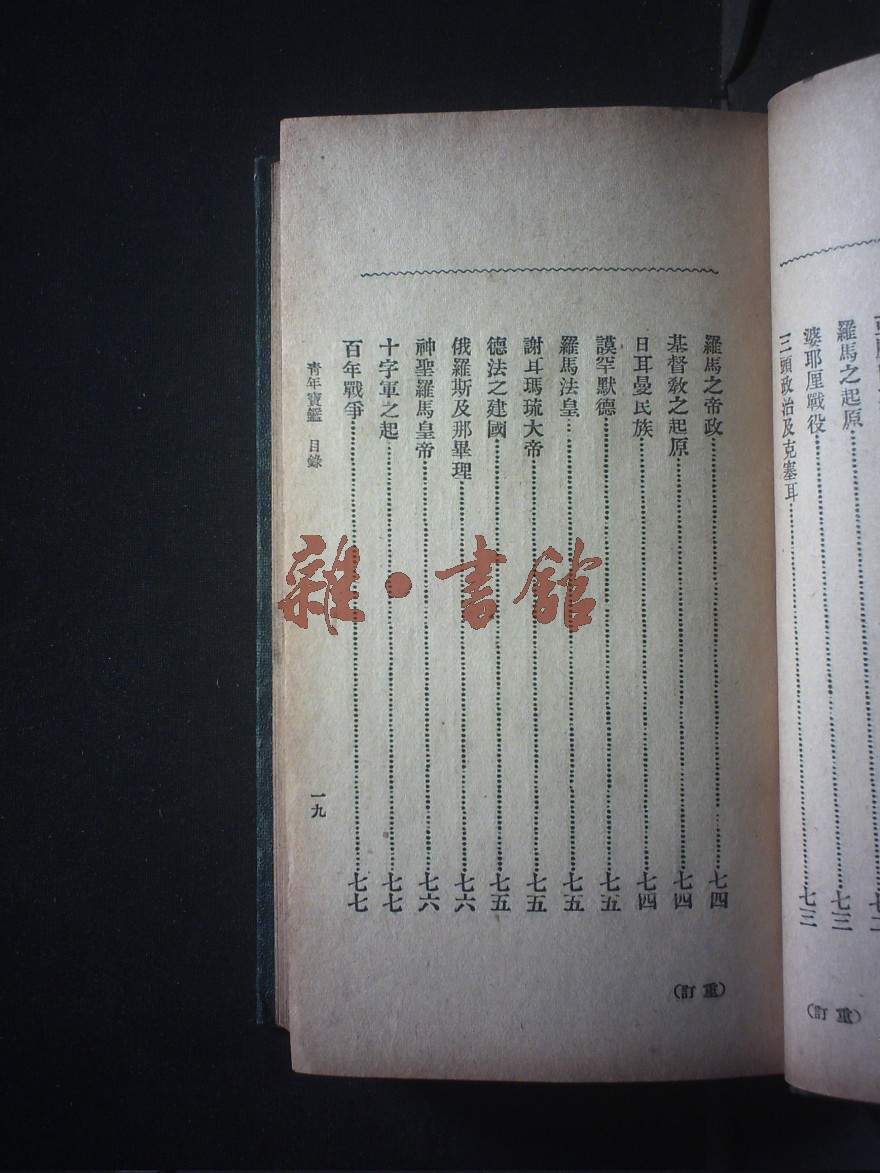 羅馬之起原……七三
婆耶厘戰役……七三
三頭政治及克塞耳
(重訂)
羅馬之帝政……七四
基督敎之起原……七四
日耳曼民族……七四
謨罕默德……七五
羅馬法皇……七五
謝耳瑪琉大帝……七五
德法之建國……七五
俄羅斯及那畢理……七六
神聖羅馬皇帝……七六
十字軍之起……七七
百年戰爭……七七
靑年寶鑑 目錄
一九
(重訂)
雜·書館